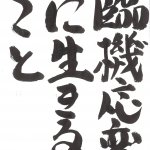 臨機応変
に生きる
こと